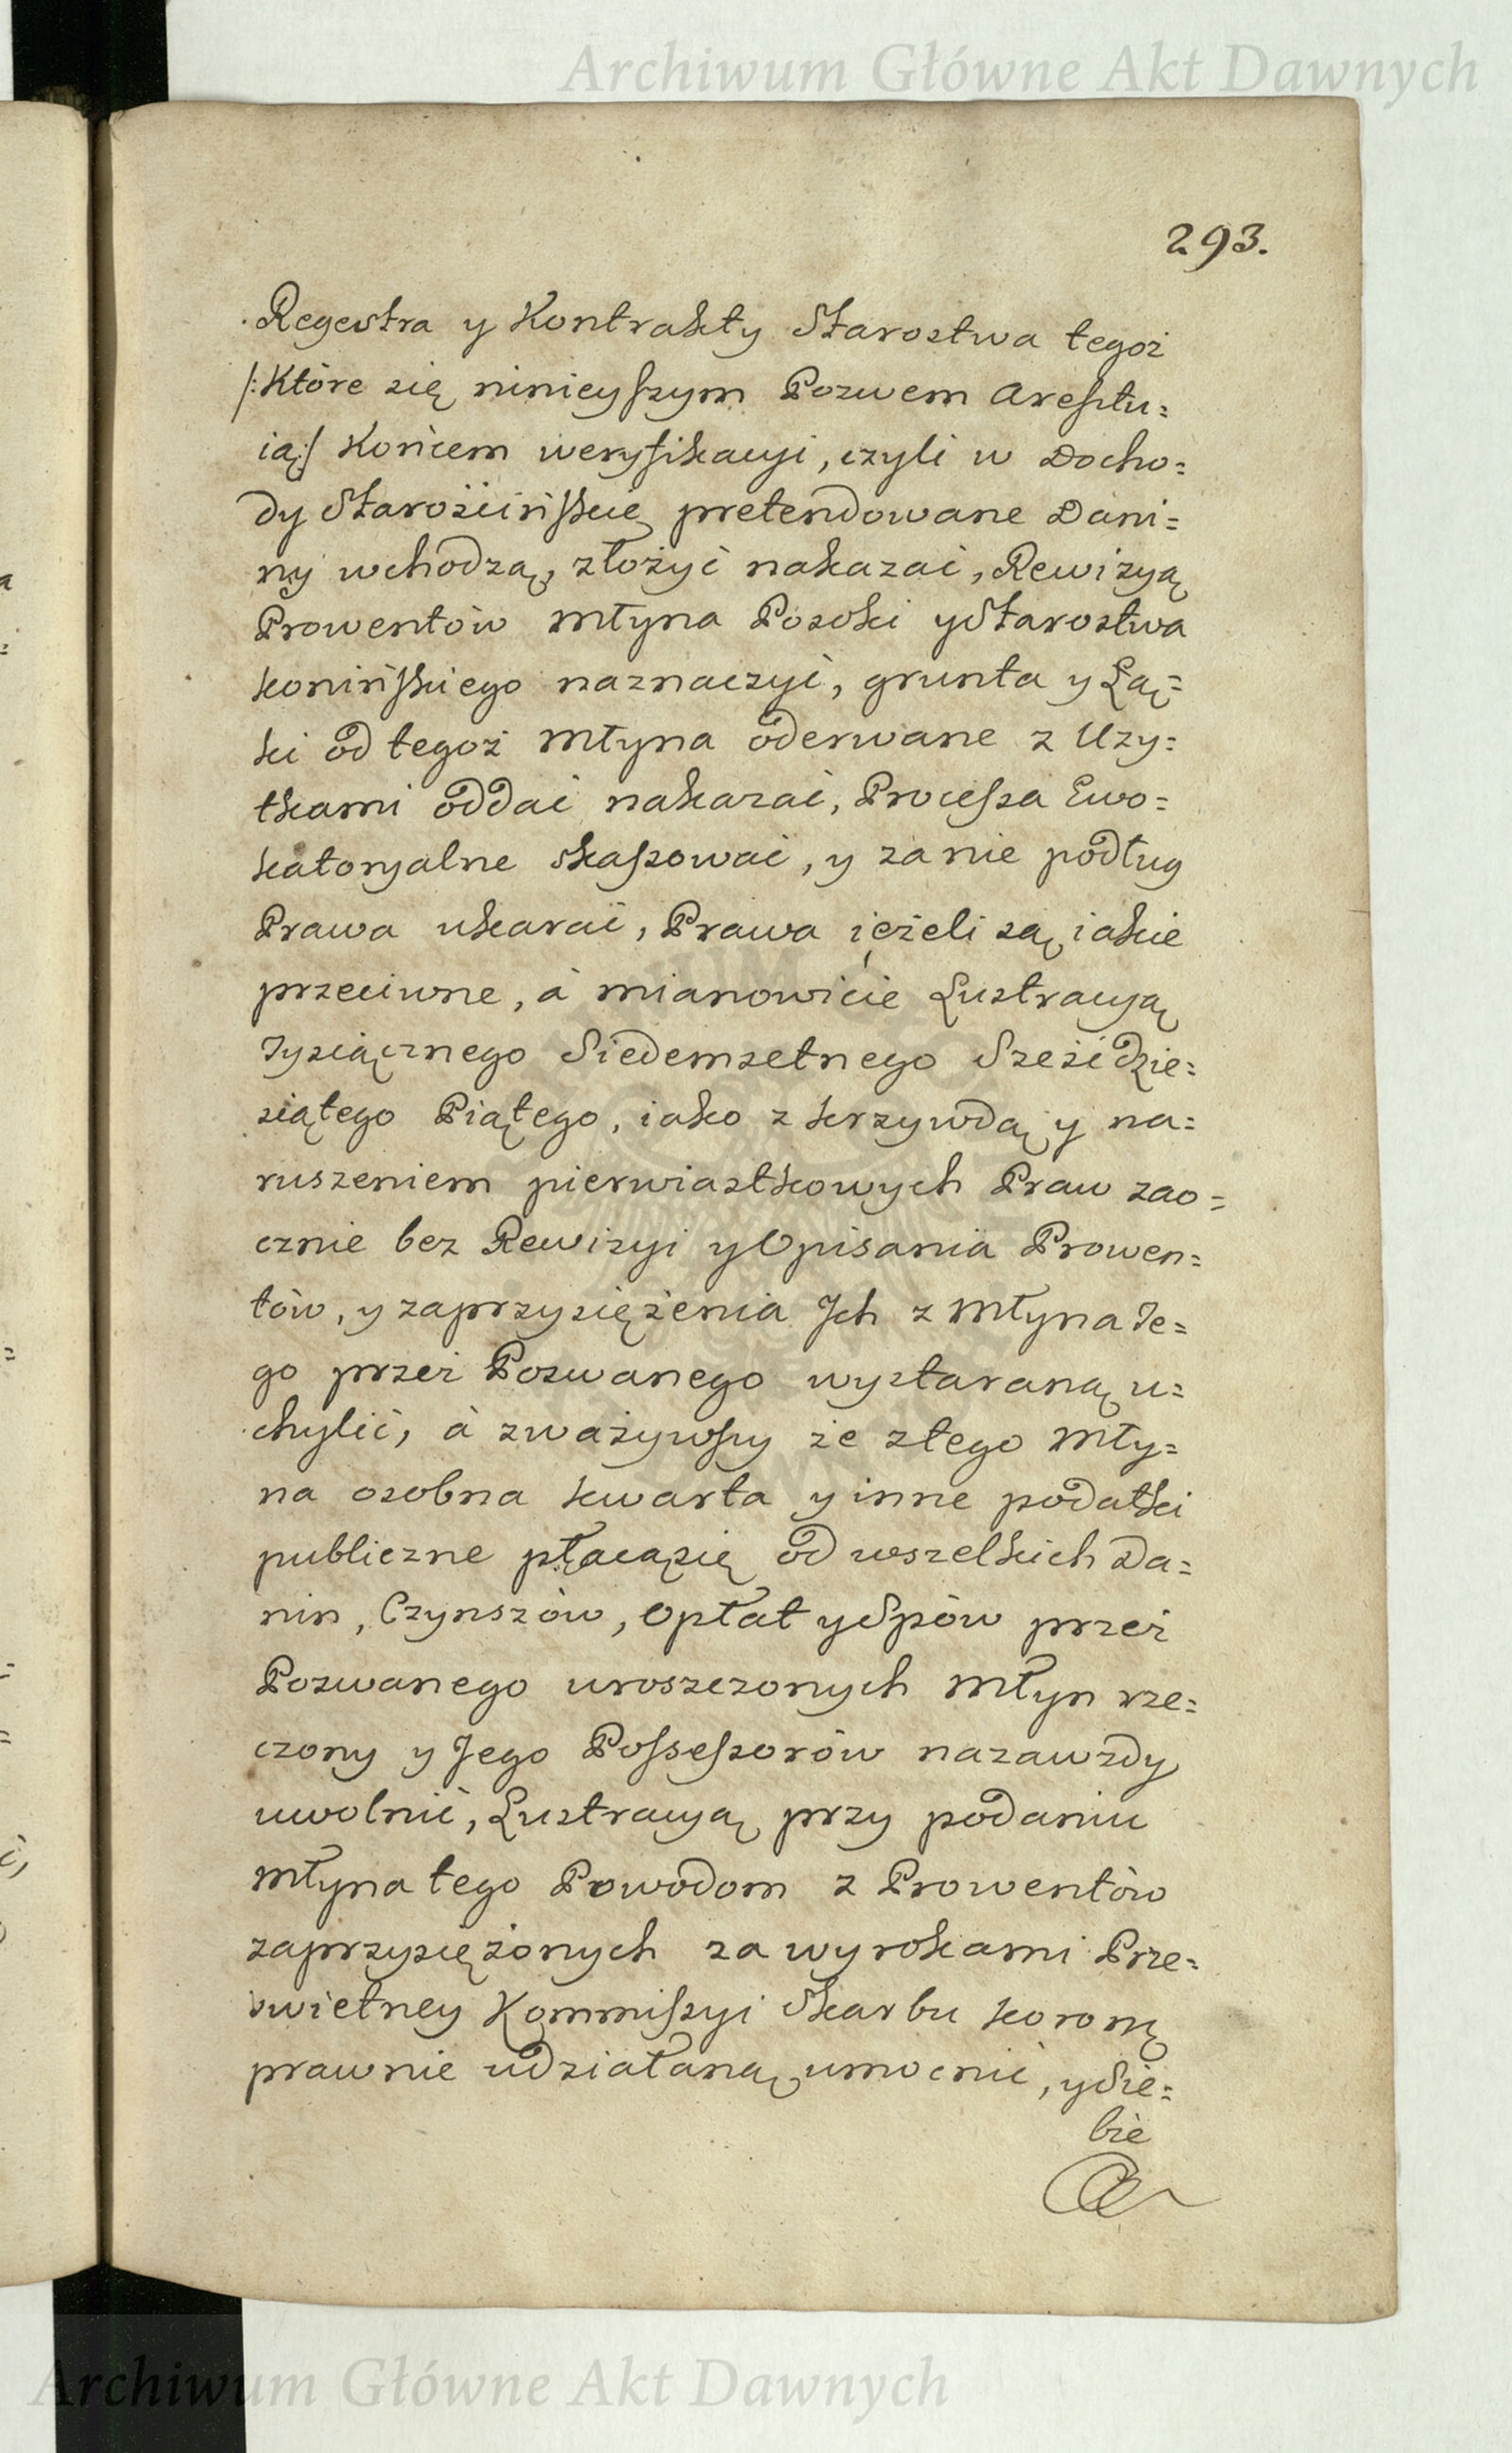 Archiwum Główne Akt Dawnych
293.
Regestra y Kontrakty Starostwa tegoż
/:Które się ninieyszym Pozwem Aresztu=
ią:/ Końcem weryfikacyi, czyli w Docho=
dy Starościńskie pretendowane Dani=
ny wchodzą, złożyć nakazać, Rewizyą
Prowentów Młyna Posoki y Starostwa
konińskiego naznaczyć, grunta y Łą=
ki od tegoż Młyna oderwane z Uży=
tkami oddać nakazać, Processa Ewo=
katoryalne skassować, y za nie podług
Prawa ukarać, Prawa ieżeli są iakie
przeciwne, à mianowicie Lustracyą
Tysiącznego Siedemsetnego Sześćdzie=
siątego Piątego, iako z krzywdą y na=
ruszeniem pierwiastkowych Praw zao=
cznie bez Rewizyi y Opisania Prowen=
tów, y zaprzysiężenia Ich z Młyna Te=
go przez Pozwanego wystaraną u=
chylić, à zważywszy że z tego Mły=
na osobna kwarta y inne podatki
publiczne płacą się od wszelkich Da=
nin, Czynszów, Opłat y Spów przez
Pozwanego uroszczonych Młyn rze=
czony y Jego Possessorów nazawzdy
uwolnić, Lustracyą przy podaniu
Młyna tego Powodom z Prowentów
zaprzysiężonych za wyrokami Prze=
świetney Kommissyi Skarbu koronę
prawnie udziałaną umocnić, y Sie=
bie
Archiwum Główne Akt Dawnych